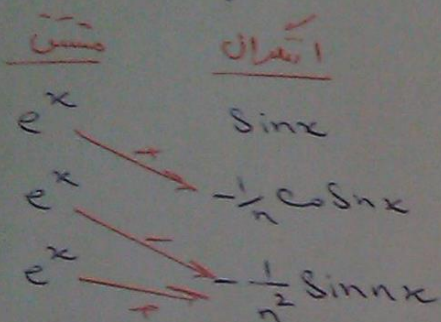 مشتق انتگرال
e^x Sinx
+
e^x -1/n Cosnx
-
e^x -1/n² Sinnx
+